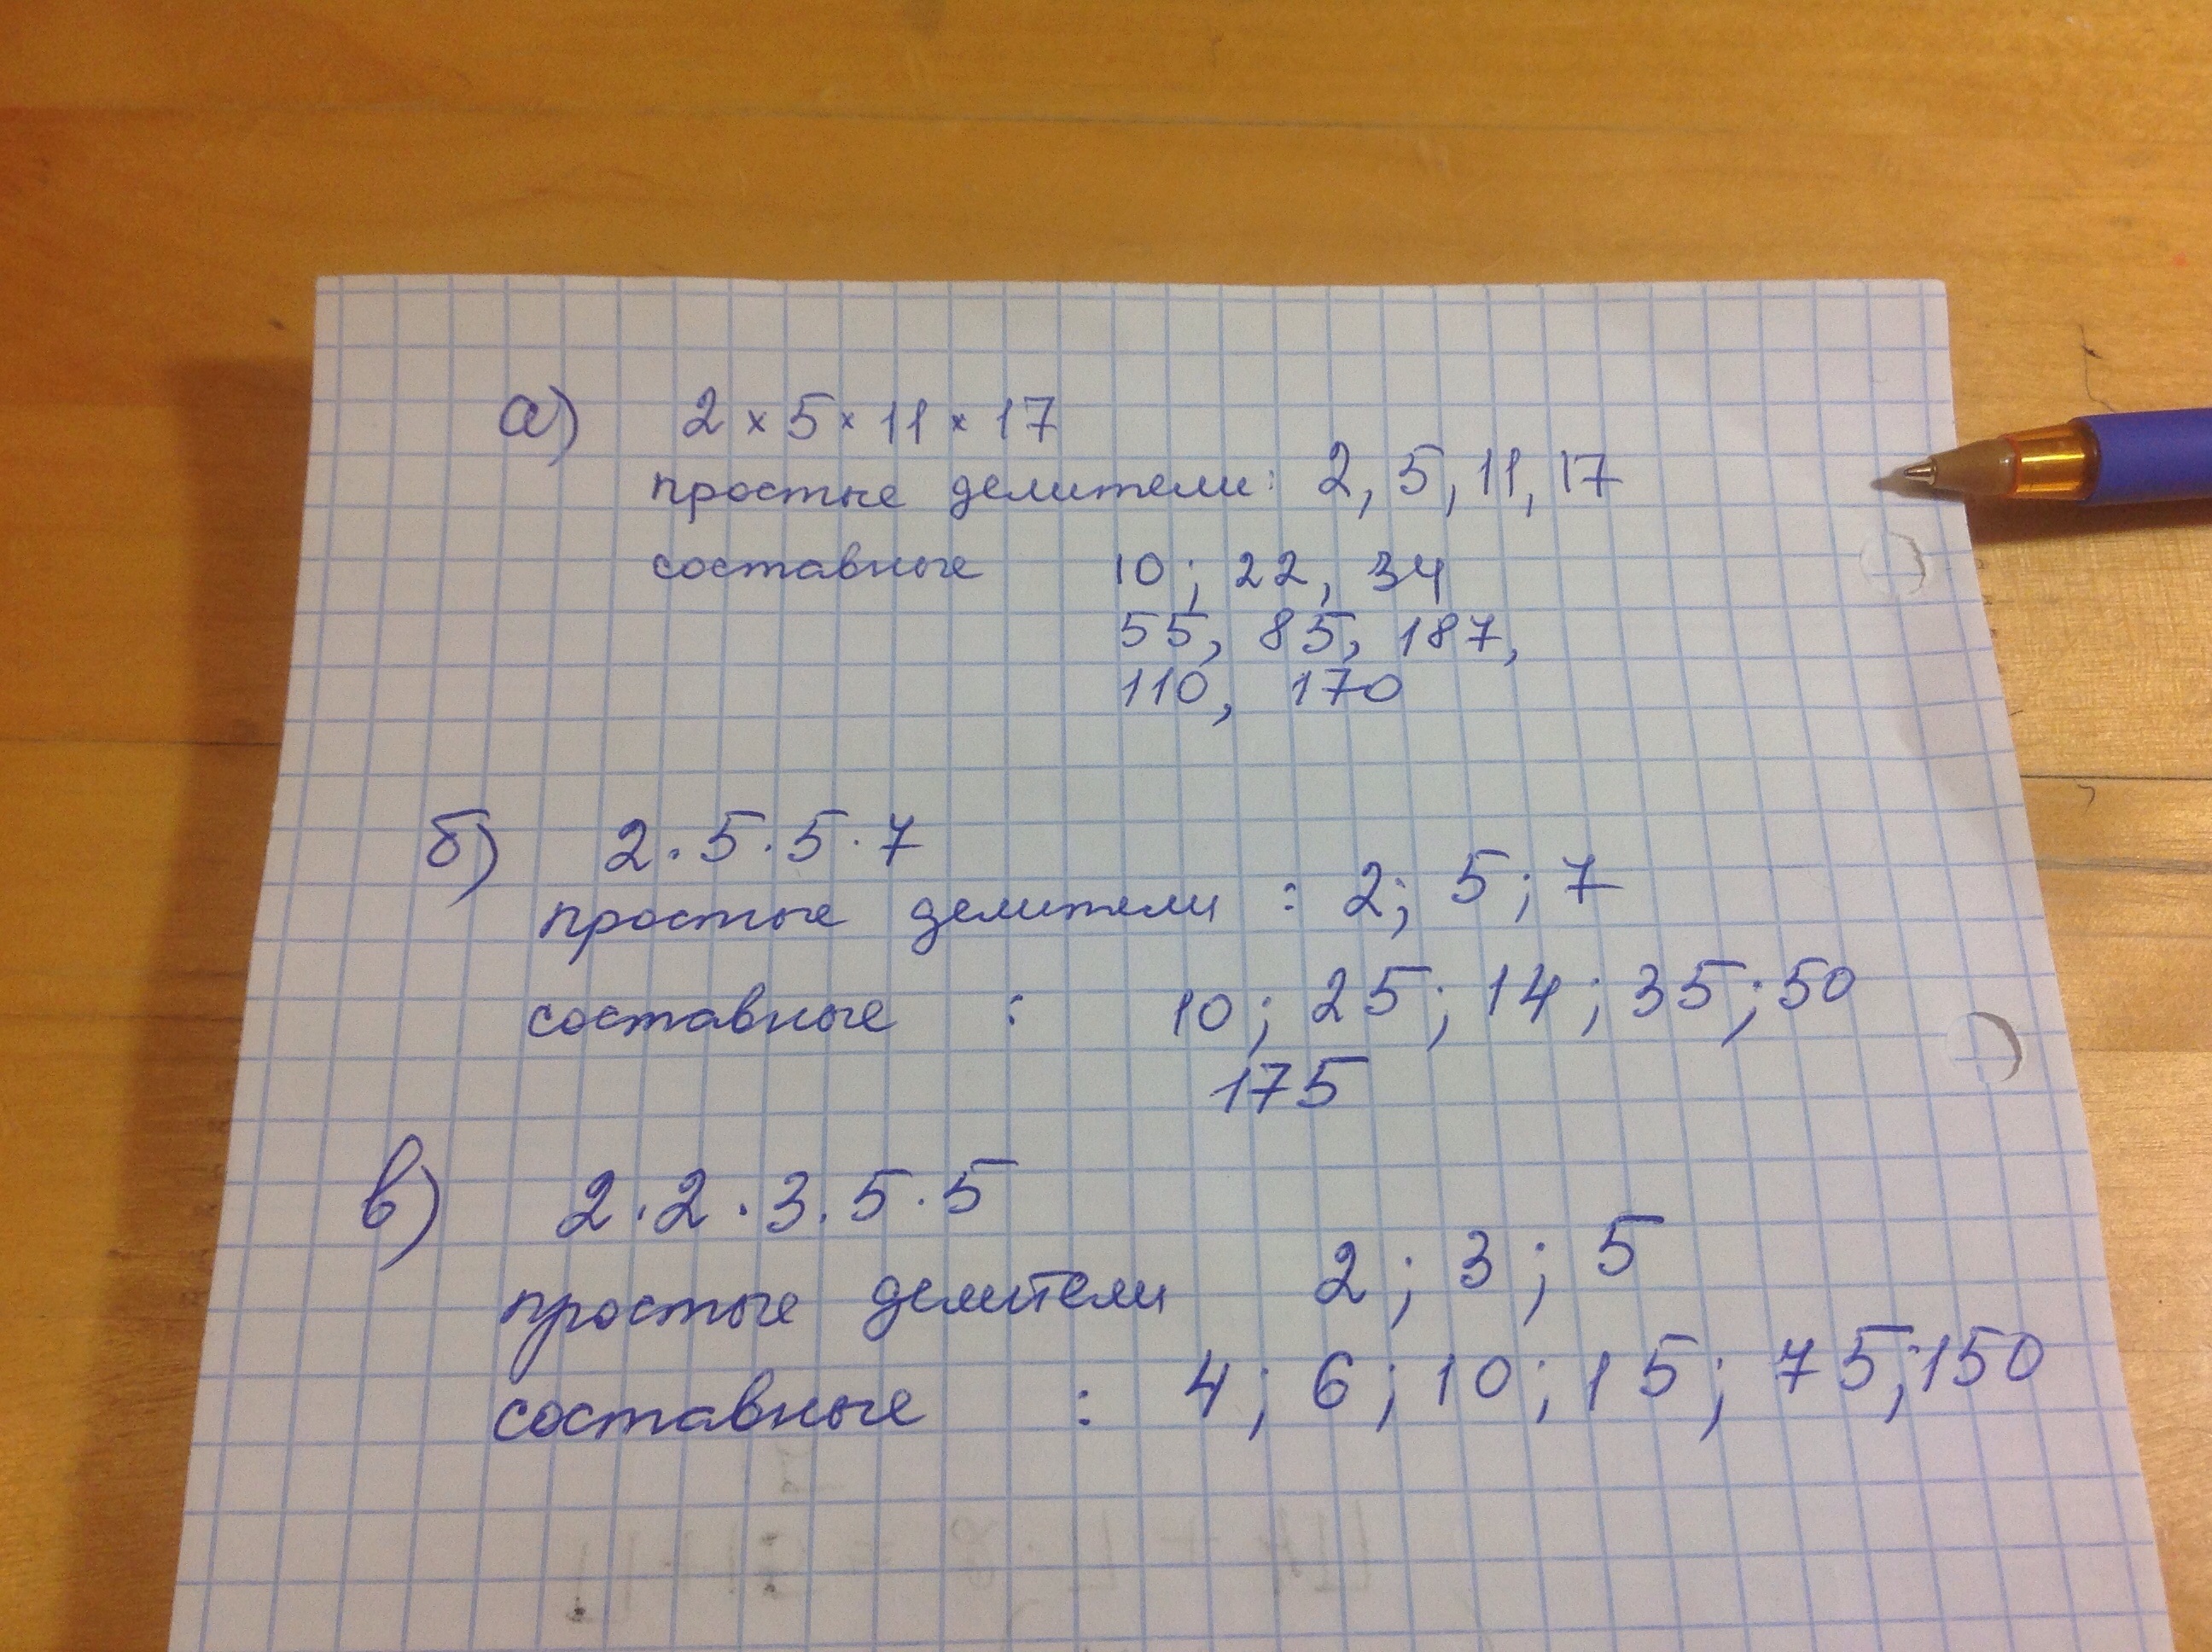 а) 2 × 5 × 11 × 17
простые делители: 2, 5, 11, 17
составные 10; 22, 34
55, 85, 187,
110, 170
б) 2 · 5 · 5 · 7
простые делители : 2; 5; 7
составные : 10; 25; 14; 35; 50
175
в) 2 · 2 · 3 · 5 · 5
простые делители 2; 3; 5
составные : 4; 6; 10; 15; 75; 150